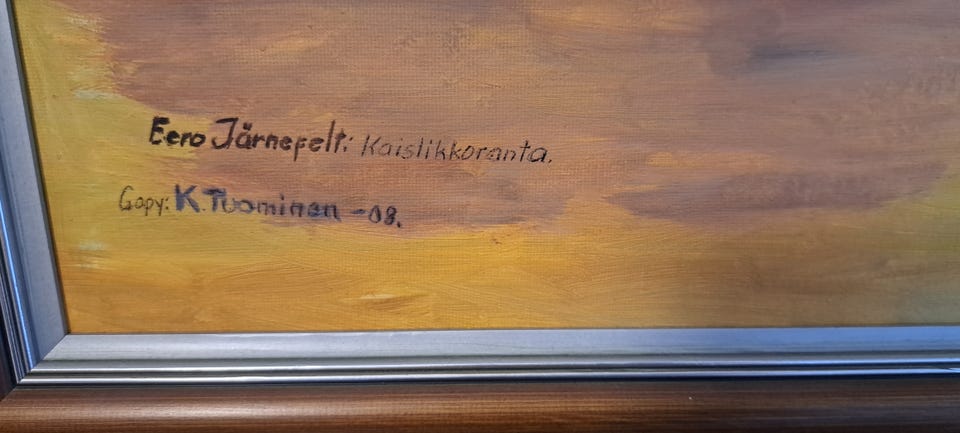 Eero Järnefelt: Kaislikkoranta.
Copy: K. Tuominen -08.